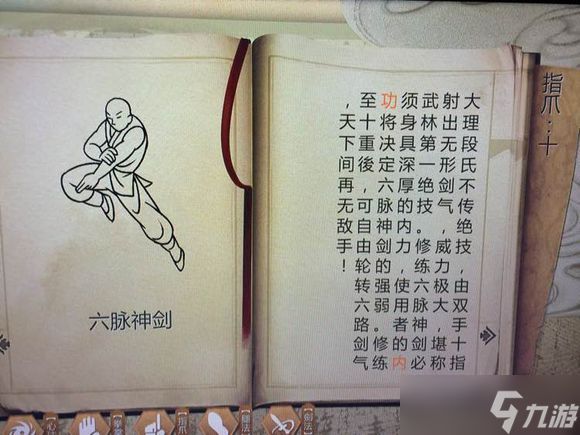 指爪：十
大理段氏不传绝技，由双手十指
射出无形剑气，威力极大，堪称
武林第一绝技。修练六脉神剑必
须身具深厚的内力，使用者的内
功将决定六脉神剑的强弱。修练
至十重後，可自由轮转六路剑气
，天下间再无敌手！
六脉神剑
九游